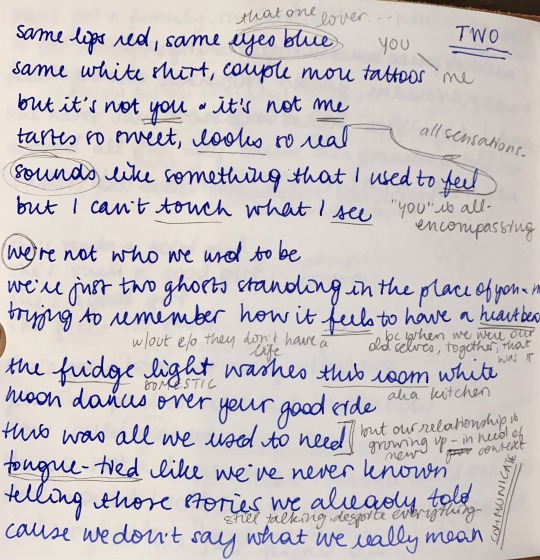 that one lover....
TWO
same lips red, same eyes blue
you
same white shirt, couple more tattoos
me
but it's not you & it's not me
tastes so sweet, looks so real
all sensations.
sounds like something that I used to feel
but I can't touch what I see
"you" is all-
encompassing
we're not who we used to be
we're just two ghosts standing in the place of you & m
trying to remember how it feels to have a heartbea
w/out e/o they don't have a
life
bc when we were our
old selves, together, that
was it
the fridge light washes this room white
DOMESTIC
aka kitchen
moon dances over your good side
this was all we used to need
but our relationship is
growing up - in need of
new context
tongue-tied like we've never known
telling those stories we already told
still talking, despite everything
cause we don't say what we really mean
COMMUNICATE